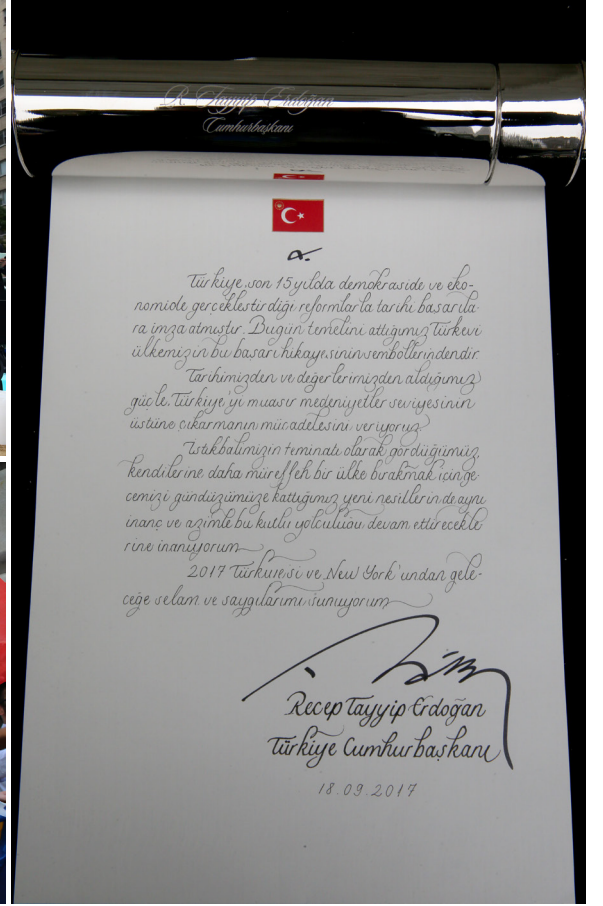 R. Tayyip Erdoğan
Cumhurbaşkanı
Türkiye, son 15 yılda demokraside ve eko-
nomide gerçekleştirdiği reformlarla tarihi başarıla
ra imza atmıştır. Bugün temelini attığımız Türkevi
ülkemizin bu başarı hikayesinin sembollerindendir.
Tarihimizden ve değerlerimizden aldığımız
güçle, Türkiye'yi muasır medeniyetler seviyesinin
üstüne çıkarmanın mücadelesini veriyoruz.
İstikbalimizin teminatı olarak gördüğümüz,
kendilerine daha müreffeh bir ülke bırakmak için ge
cemizi gündüzümüze kattığımız yeni nesillerin de aynı
inanç ve azimle bu kutlu yolculuğu devam ettirecekle
rine inanıyorum
2017 Türkiyesi ve New York'undan gele-
ceğe selam ve saygılarımı sunuyorum
Recep Tayyip Erdoğan
Türkiye Cumhurbaşkanı
18.09.2017